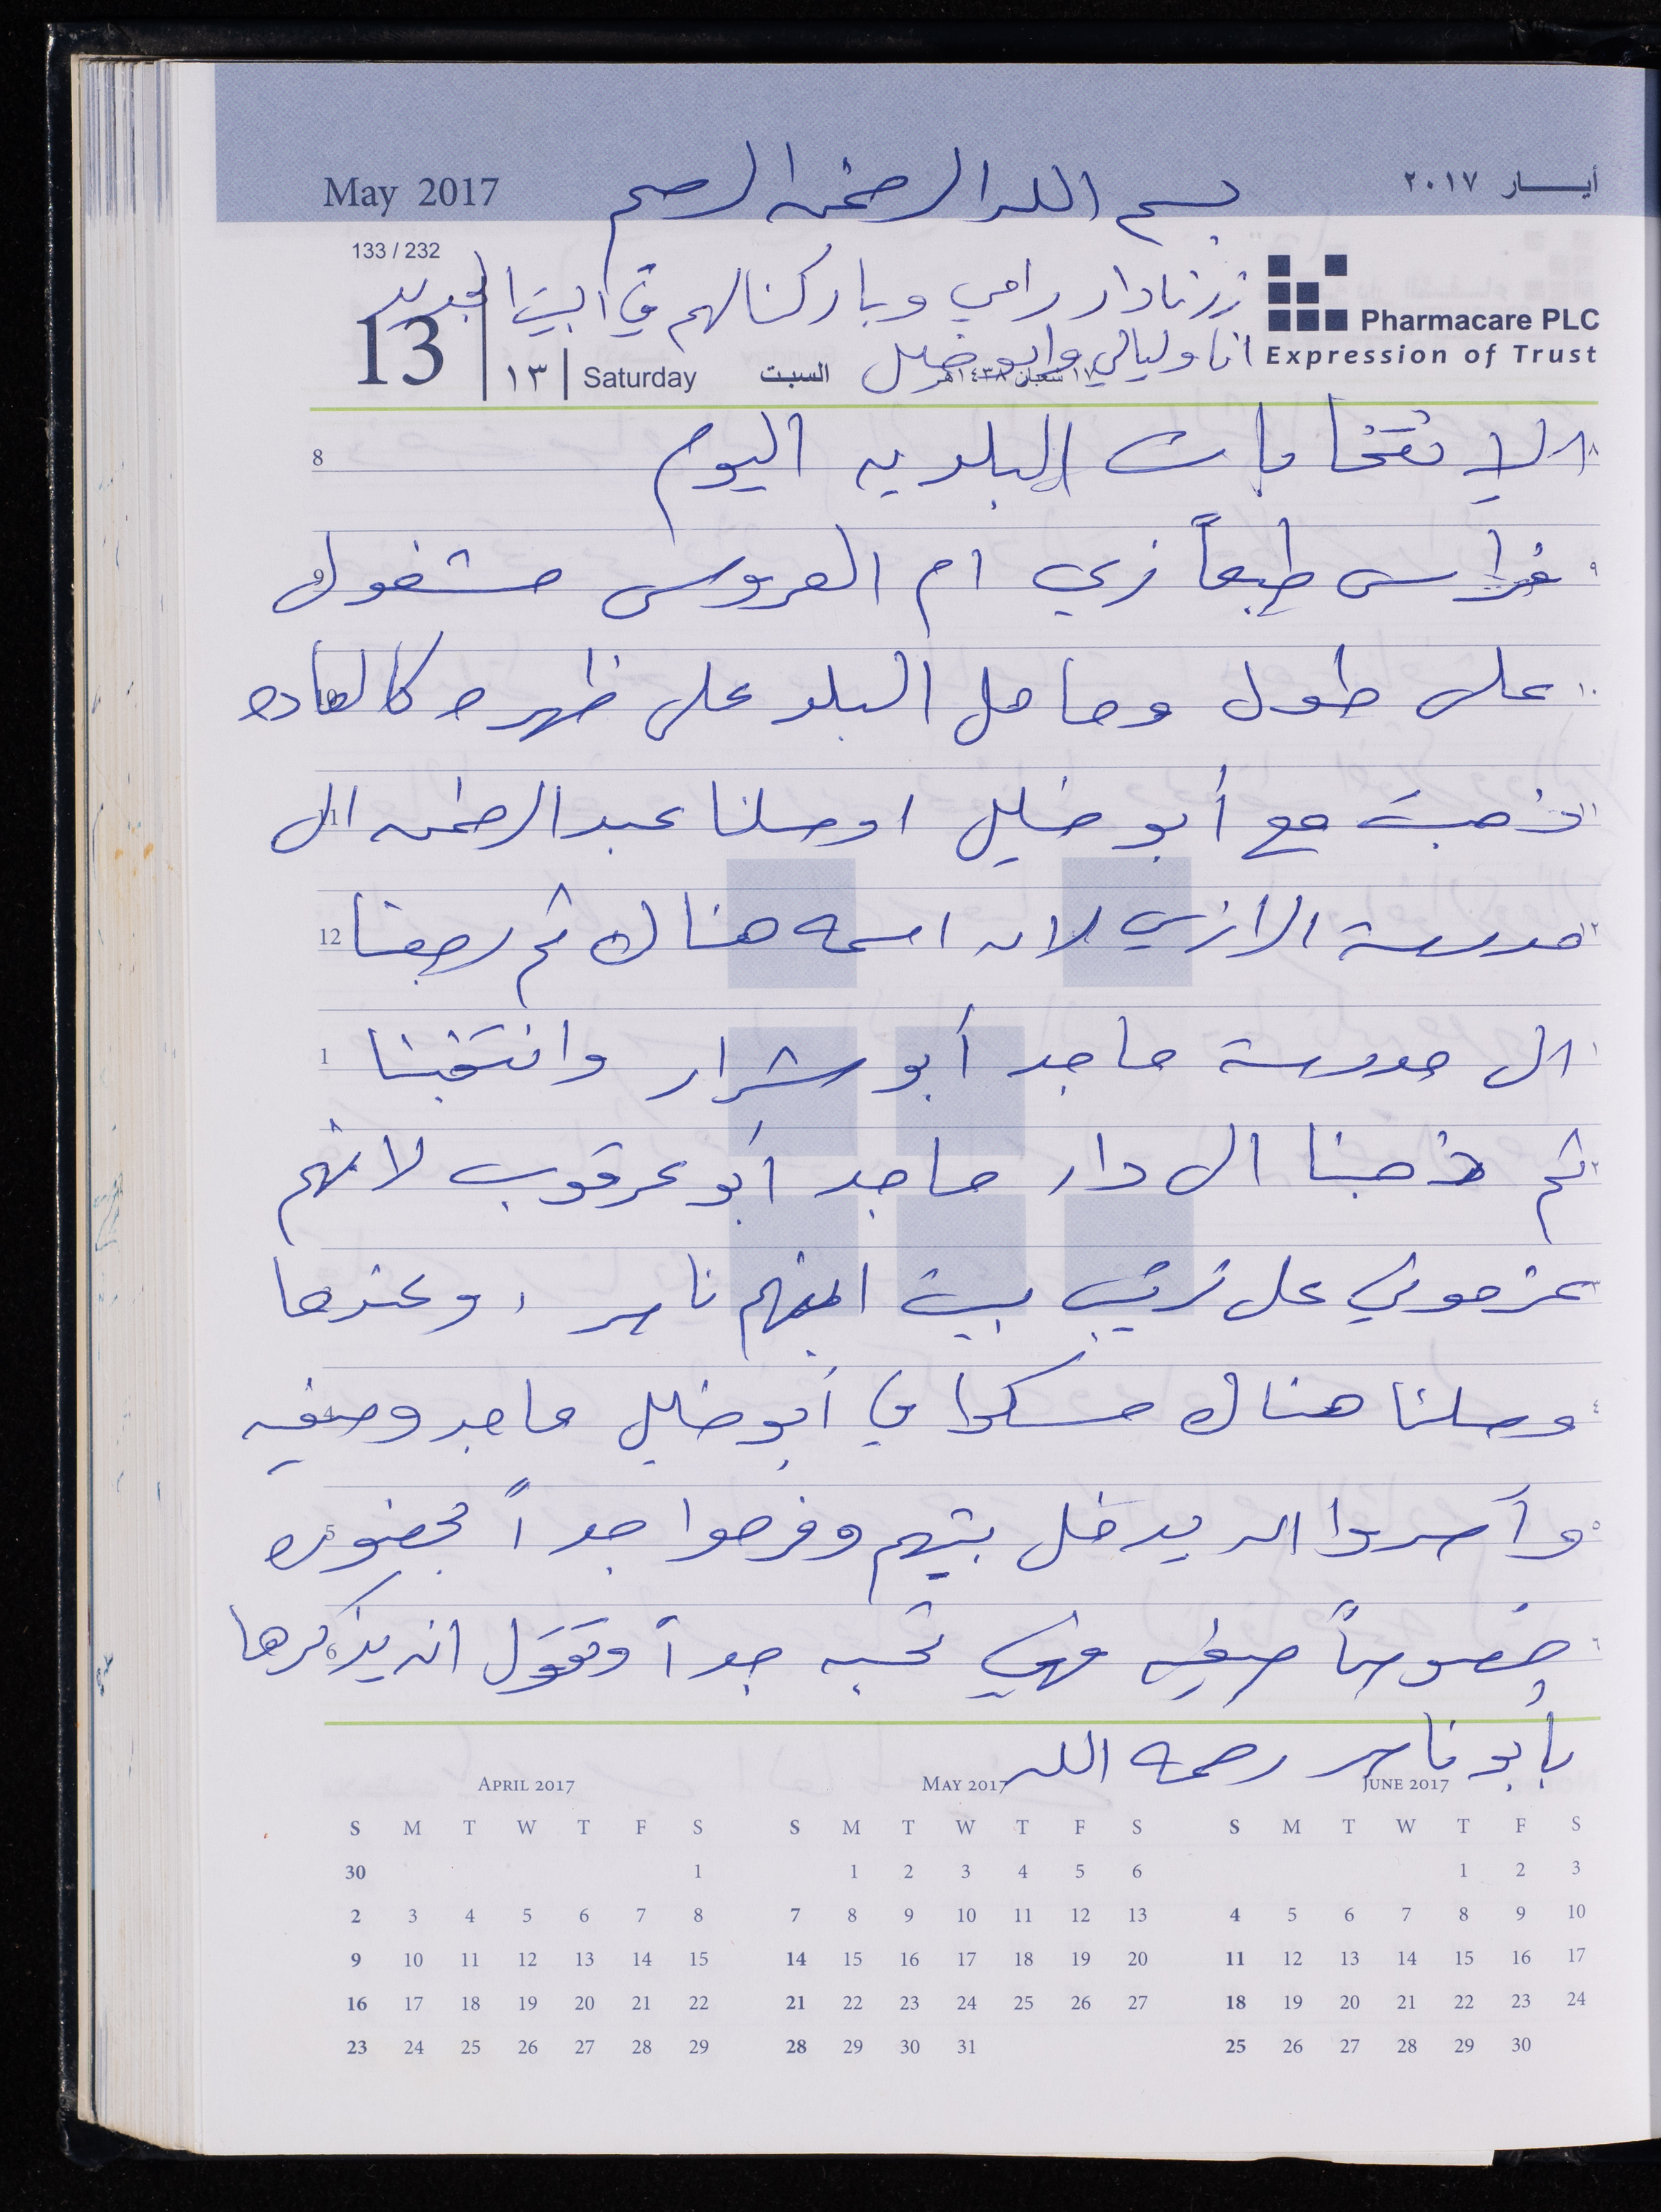 May 2017
أيـــار ٢٠١٧
بسم الله الرحمن الرحيم
133 / 232
زرنا دار رامي وباركنا لهم في البيت الجديد
Pharmacare PLC
انا وليالي وابو خليل
Expression of Trust
13 ١٣ Saturday السبت ١٧ شعبان ١٤٣٨هـ
الانتخابات البلديه اليوم
8 ٨
فراس طبعاً زي ام العروس مشغول
9 ٩
على طول وحامل البلد على ظهره كالعاده
10 ١٠
ذهبت مع أبو خليل اوصلنا عبد الرحمن الى
11 ١١
مدرسة الرازي لان اسمه هناك ثم رجعنا
12 ١٢
الى مدرسة ماجد أبو شرار وانتخبنا
1 ١
ثم ذهبنا الى دار ماجد أبو عرقوب لانهم
2 ٢
عزموني على ترتيب بيت ابنهم ناصر، وعندها
3 ٣
وصلنا هناك مسكوا في أبو خليل ماجد وصفيه
4 ٤
وأصروا ان يدخل بيتهم وفرحوا جداً بحضوره
5 ٥
خصوصاً صفيه فهي تحبه جداً وتقول انه يذكرها
6 ٦
بابو ناصر رحمه الله
April 2017 May 2017 June 2017
S M T W T F S S M T W T F S S M T W T F S
30 1 1 2 3 4 5 6 1 2 3
2 3 4 5 6 7 8 7 8 9 10 11 12 13 4 5 6 7 8 9 10
9 10 11 12 13 14 15 14 15 16 17 18 19 20 11 12 13 14 15 16 17
16 17 18 19 20 21 22 21 22 23 24 25 26 27 18 19 20 21 22 23 24
23 24 25 26 27 28 29 28 29 30 31 25 26 27 28 29 30